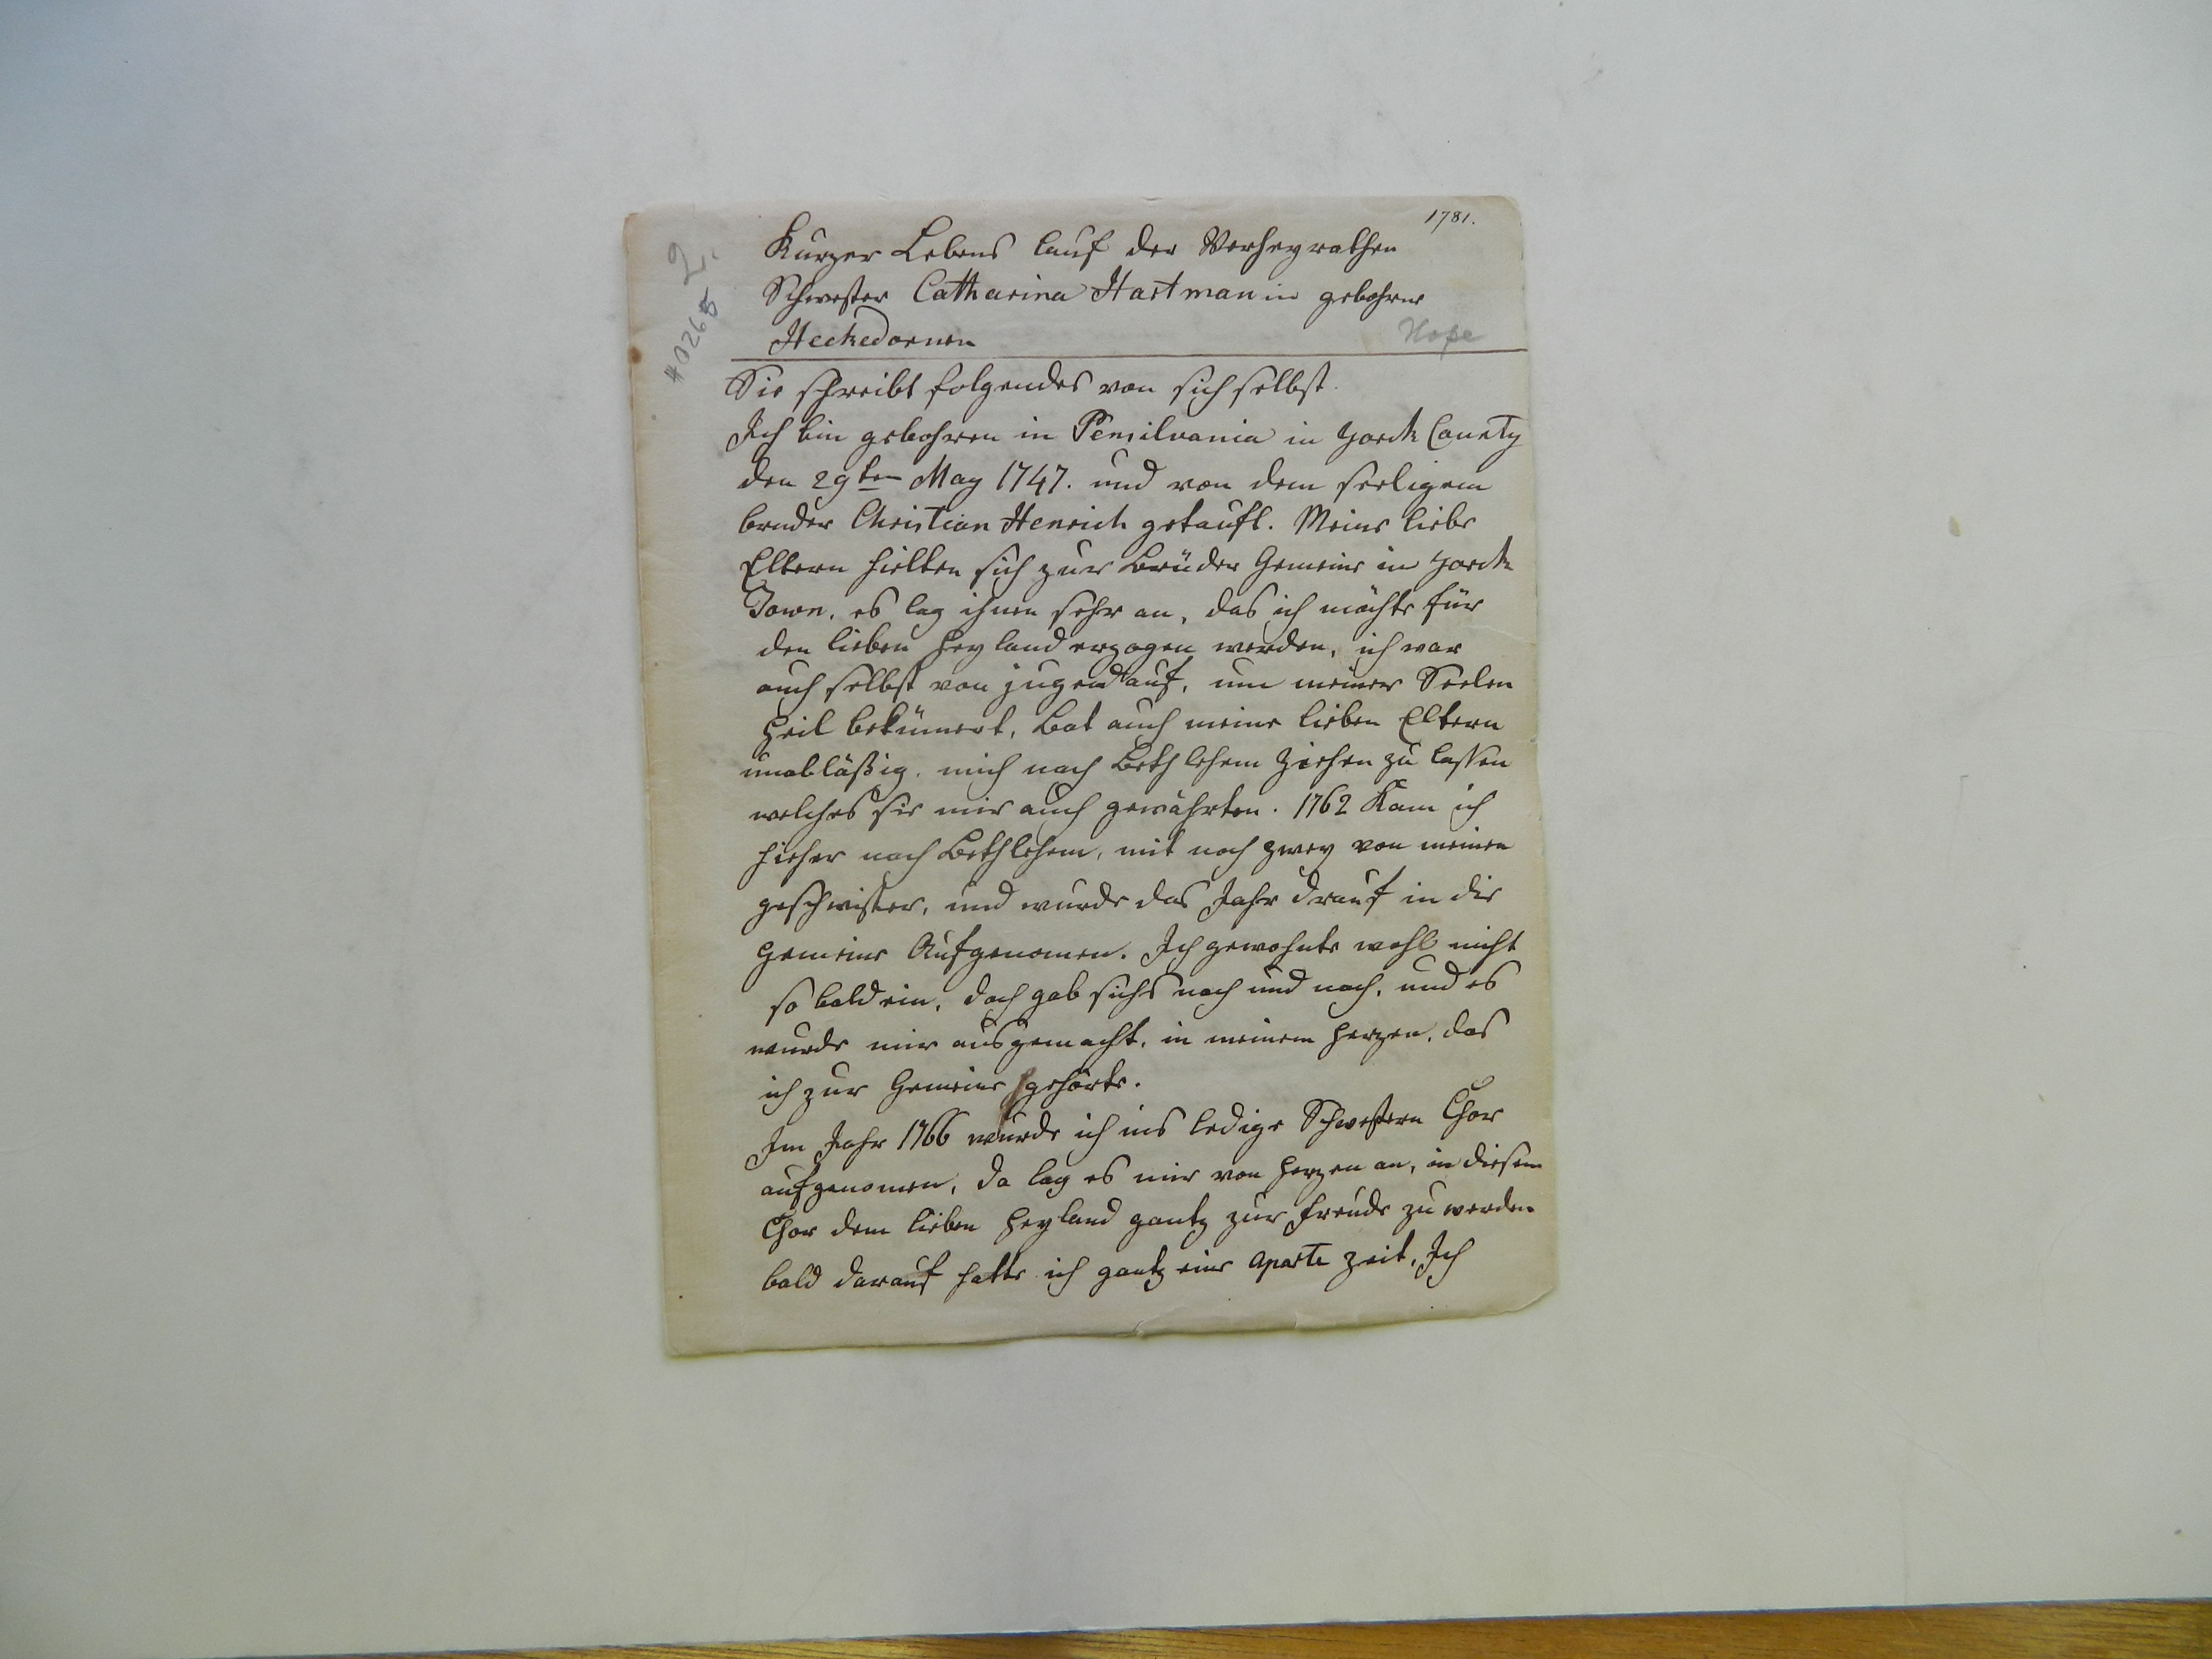 1781.
2.
#0265
Kurzer Lebens lauf der Verheyrathen
Schwester Catharina Hartmanin gebohrne
Heckedornen
Hope
Sie schreibt folgendes von sich selbst.
Ich bin gebohren in Pensilvania in Yorck County
den 29ten May 1747. und von dem seeligem
bruder Christian Henrich getauft. Meine liebe
Eltern hielten sich zur Brüder Gemeine in Yorck
Town. es lag ihnen sehr an, das ich möchte für
den lieben Heyland erzogen werden, ich war
auch selbst von jugend auf, um meiner Seelen
Heil bekümert, Bat auch meine lieben Eltern
unabläßig. mich nach Bethlehem Ziehen zu lassen
welches sie mir auch gewährten. 1762 Kam ich
hieher nach Bethlehem, mit noch zwey von meinen
geschwister, und wurde das Jahr drauf in die
gemeine Aufgenomen. Ich gewohnte wohl nicht
so bald ein, doch gab sichs nach und nach, und es
wurde mir ausgemacht, in meinem Herzen, das
ich zur Gemeine gehörte.
Im Jahr 1766 wurde ich ins ledige Schwestern Chor
aufgenomen, da lag es mir von Herzen an, in diesem
Chor dem lieben Heyland gantz zur freude zu werden
bald darauf hatte ich gantz eine aparte Zeit, Ich